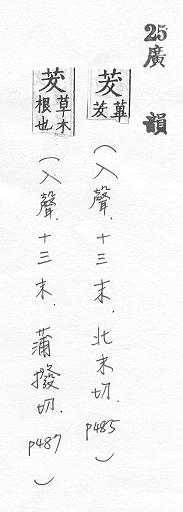 25廣韻
茇 蓽茇 (入聲.十三末.北末切.p485)
茇 草木根也 (入聲.十三末.蒲撥切.p487)